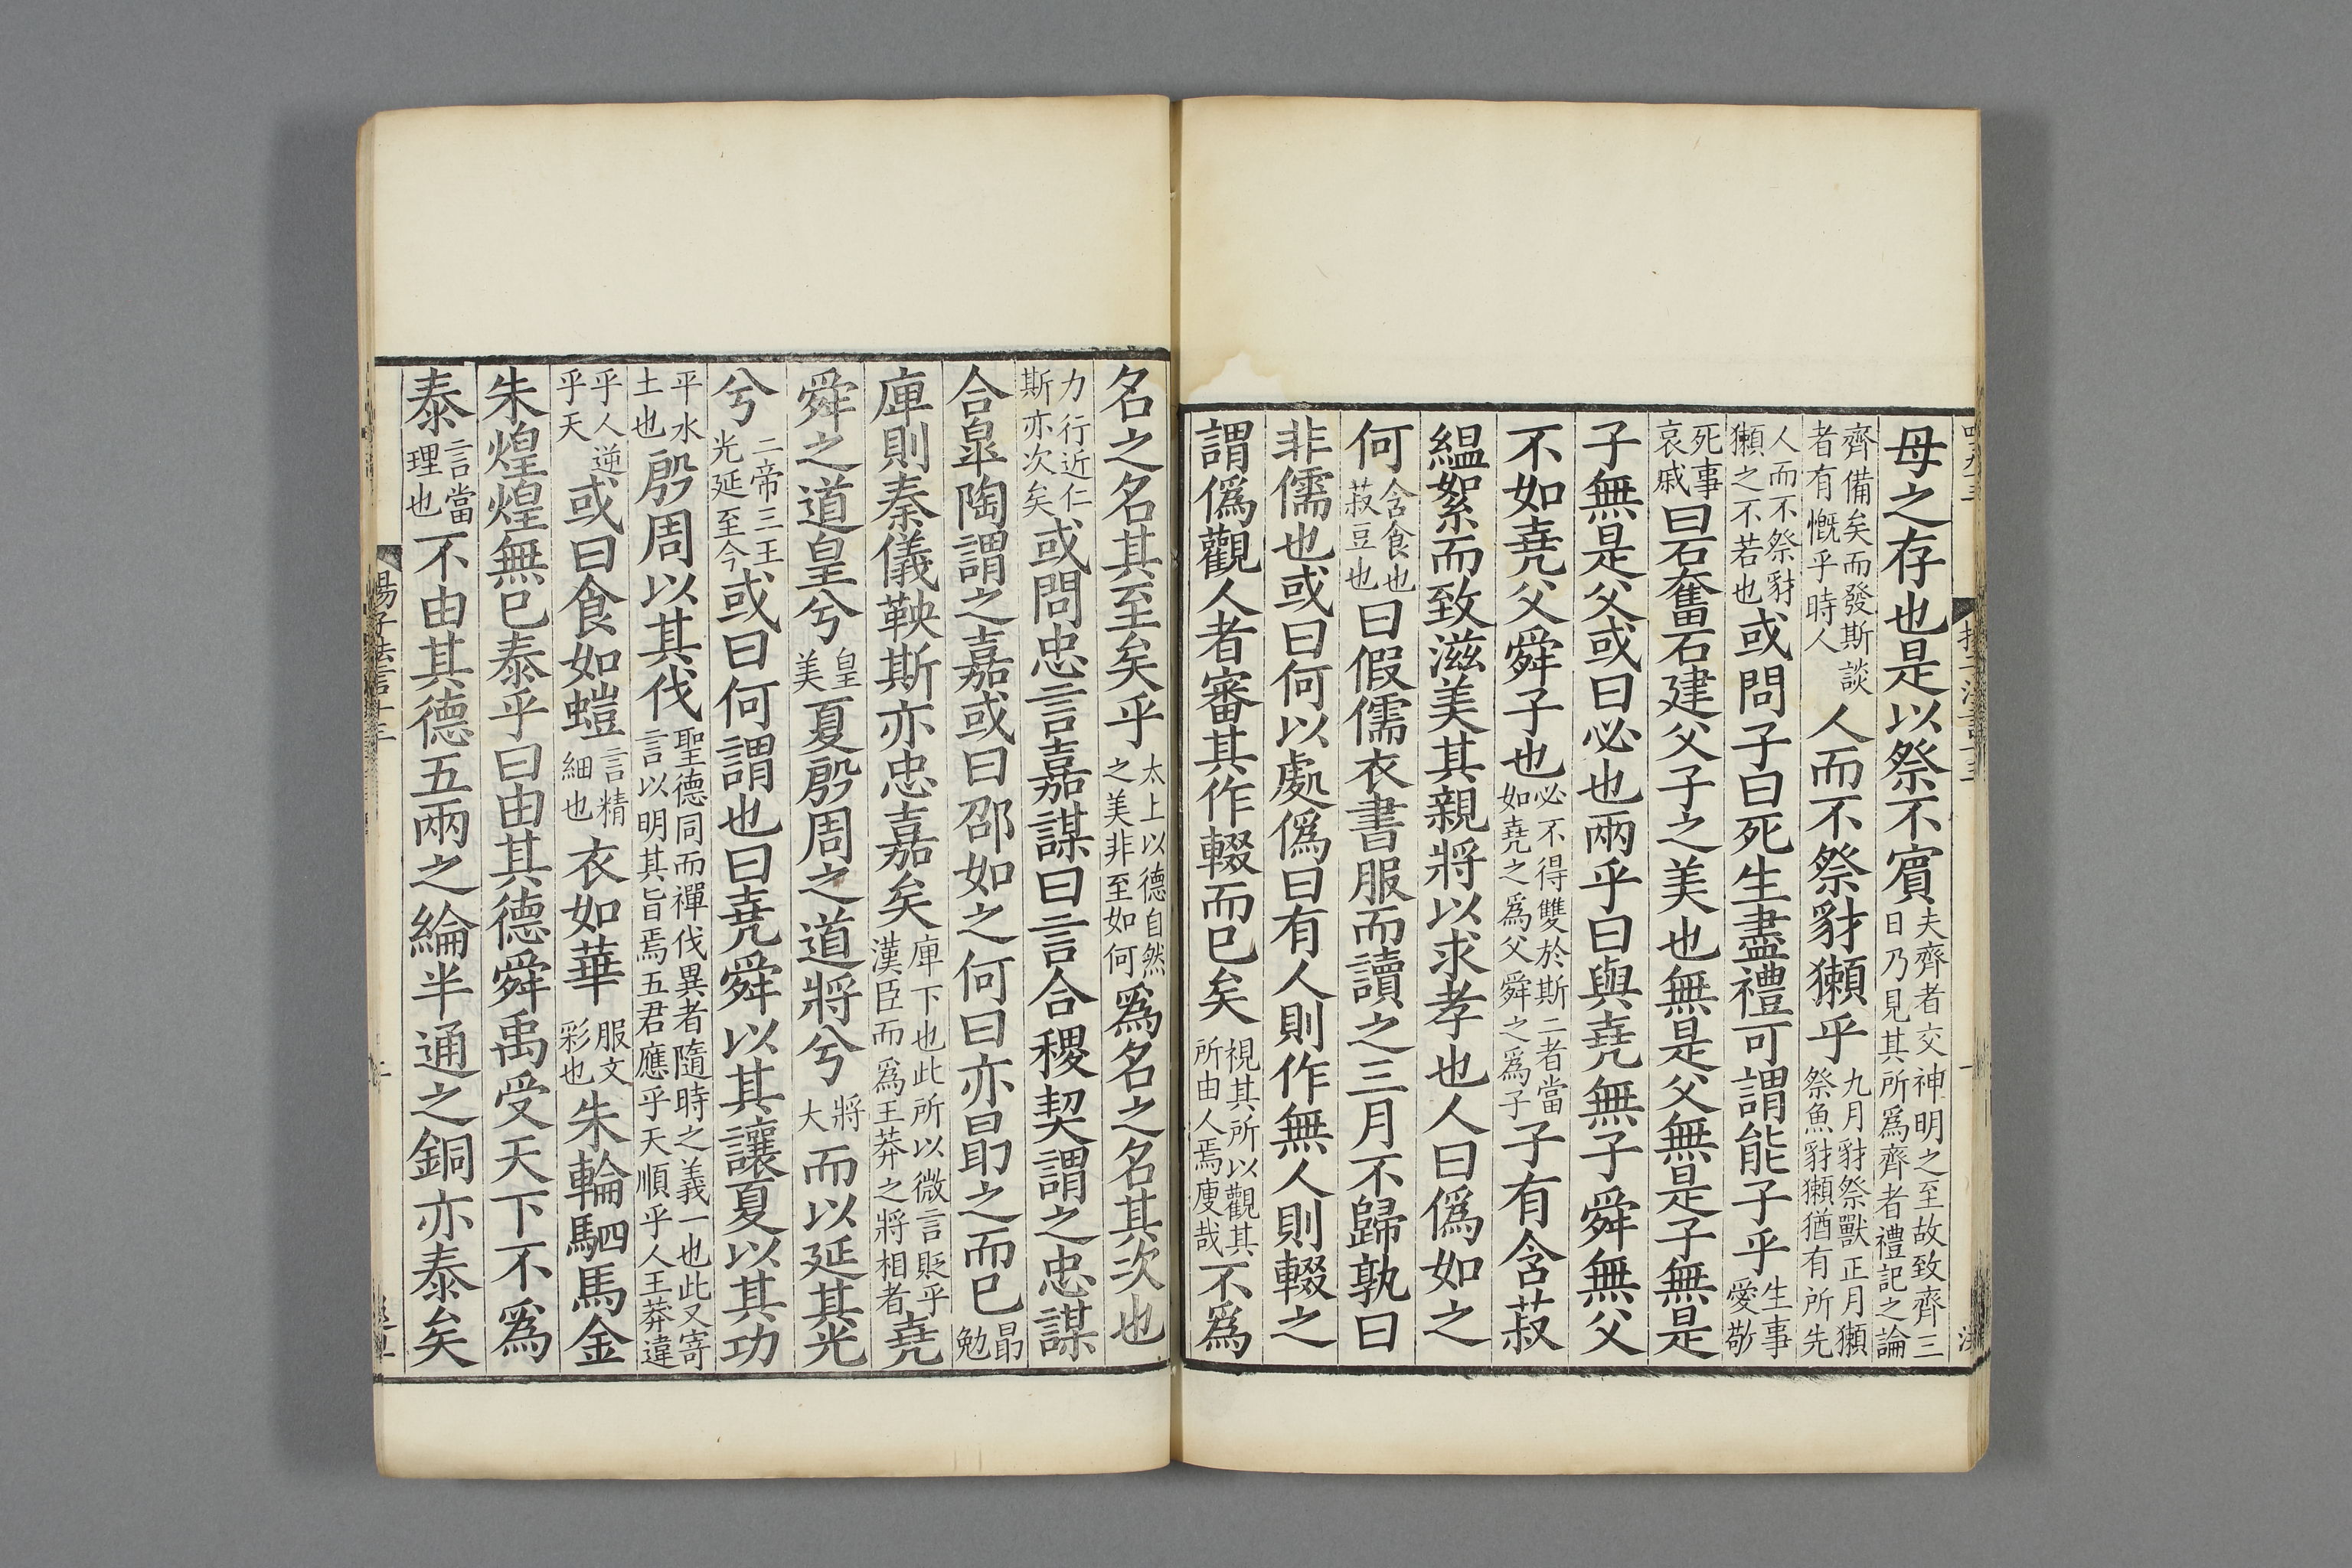 母之存也是以祭不賓夫齊者交神明之至故致齊三日乃見其所爲齊者禮記之論
齊備矣而發斯談者有慨乎時人人而不祭豺獺乎九月豺祭獸正月獺祭魚豺獺猶有所先
人而不祭豺獺之不若也或問子曰死生盡禮可謂能子乎生事愛敬
死事哀戚曰石奮石建父子之美也無是父無是子無是
子無是父或曰必也兩乎曰與堯無子舜無父
不如堯父舜子也必不得雙於斯二者當如堯之爲父舜之爲子子有含菽
縕絮而致滋美其親將以求孝也人曰僞如之
何含食也菽豆也曰假儒衣書服而讀之三月不歸孰曰
非儒也或曰何以處僞曰有人則作無人則輟之
謂僞觀人者審其作輟而已矣視其所以觀其所由人焉廋哉不爲
名之名其至矣乎太上以德自然之美非至如何爲名之名其次也
力行近仁斯亦次矣或問忠言嘉謀曰言合稷契謂之忠謀
合皐陶謂之嘉或曰邵如之何曰亦勗之而已勗勉
庫則秦儀鞅斯亦忠嘉矣庫下也此所以微言貶乎漢臣而爲王莽之將相者堯
舜之道皇兮皇美夏殷周之道將兮將大而以延其光
兮二帝三王光延至今或曰何謂也曰堯舜以其讓夏以其功
平水土也殷周以其伐聖德同而禪伐異者隨時之義一也此又寄言以明其旨焉五君應乎天順乎人王莽違
乎人逆乎天或曰食如螘言精細也衣如華服文彩也朱輪駟馬金
朱煌煌無已泰乎曰由其德舜禹受天下不爲
泰言當理也不由其德五兩之綸半通之銅亦泰矣